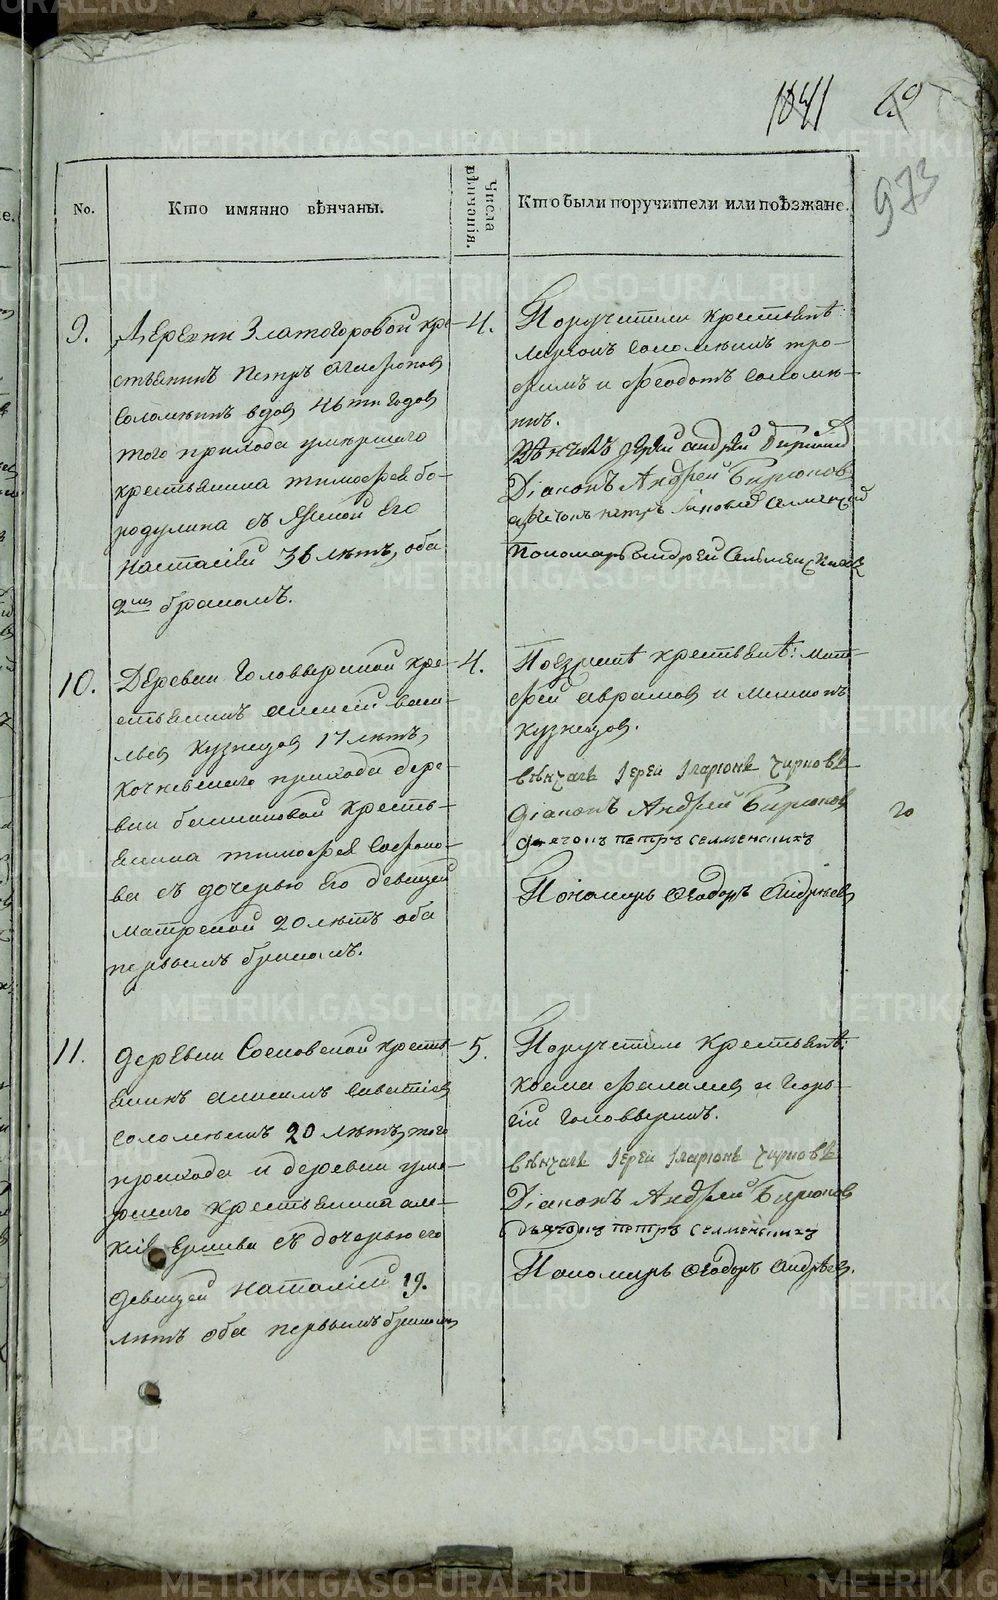 1041
973
No.
Кто имянно вѣнчаны.
Числа вѣнчанія.
Кто были поручители или поѣзжане.
9.
Деревни Златогоровой кре-
стьянинъ Петръ Агафоновъ
Соломеинъ вдовъ 46ти годовъ
того прихода умершаго
крестьянина тимофея бо-
родулина съ женой Его
Настасіей 36 лѣтъ, оба
2мъ бракомъ.
4.
Поручители крестьянѣ:
Соломеинъ тро-
фимъ и Феодотъ Соломе-
инъ.
Вѣнчалъ Іерей Андрей
Діаконъ Андрей Бирюковъ
петръ Селменских
Пономарь Андрей
10.
Деревни Головыриной кре-
стьянинъ Алексей васи-
льев Кузнецов 17 лѣтъ,
Кочневскаго прихода дере-
вни крестья-
янина тимофея Сафоно-
ва съ дочерью Его девицей
Матреной 20 лѣтъ оба
первымъ бракомъ.
4.
Поезжанѣ крестьянѣ: Мат-
фей Аврамов и
Кузнецов.
вѣнчалъ Іерей Іларіонъ Чирковъ
діаконъ Андрей Бирюков
дьячокъ петръ селменскихъ
Пономарь Феодоръ Андреев
20
11.
деревни Сосновской кресть-
янинъ Анисимъ Савватіев
Соломеинъ 20 лѣтъ, того
прихода и деревни уме-
ршаго крестьянина
съ дочерью его
девицей Наталіей 19.
лѣтъ оба первымъ бракомъ
5.
Поручители крестьянѣ:
Косма и Геор-
гій Головыринъ.
вѣнчалъ Іерей Іларіонъ Чирковъ
Діаконъ Андрей Бирюков
дьячокъ петръ селменскихъ
Пономарь Феодоръ Андреев.
METRIKI.GASO-URAL.RU